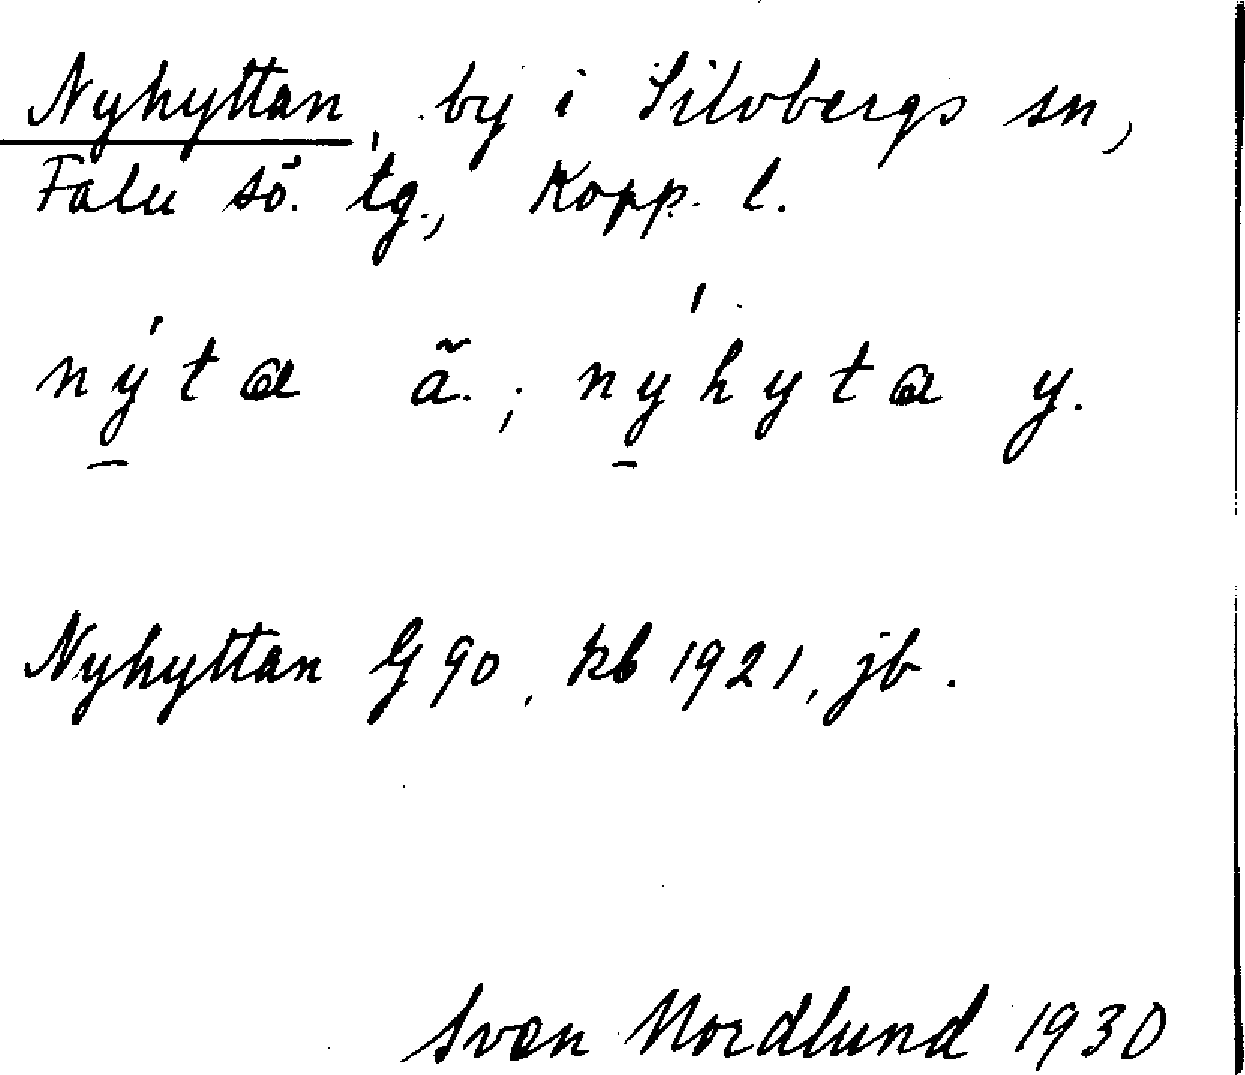 Nyhyttan, by i Silvbergs sn,
Falu sö. tg., Kopp. l.
ný̱ta ã.; ný̱hyta y.
Nyhyttan G 90, kb 1921, jb.
Sven Nordlund 1930